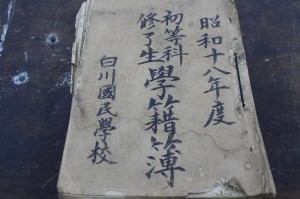 昭和十八年度
初等科
修了生
學籍簿
白川國民學校